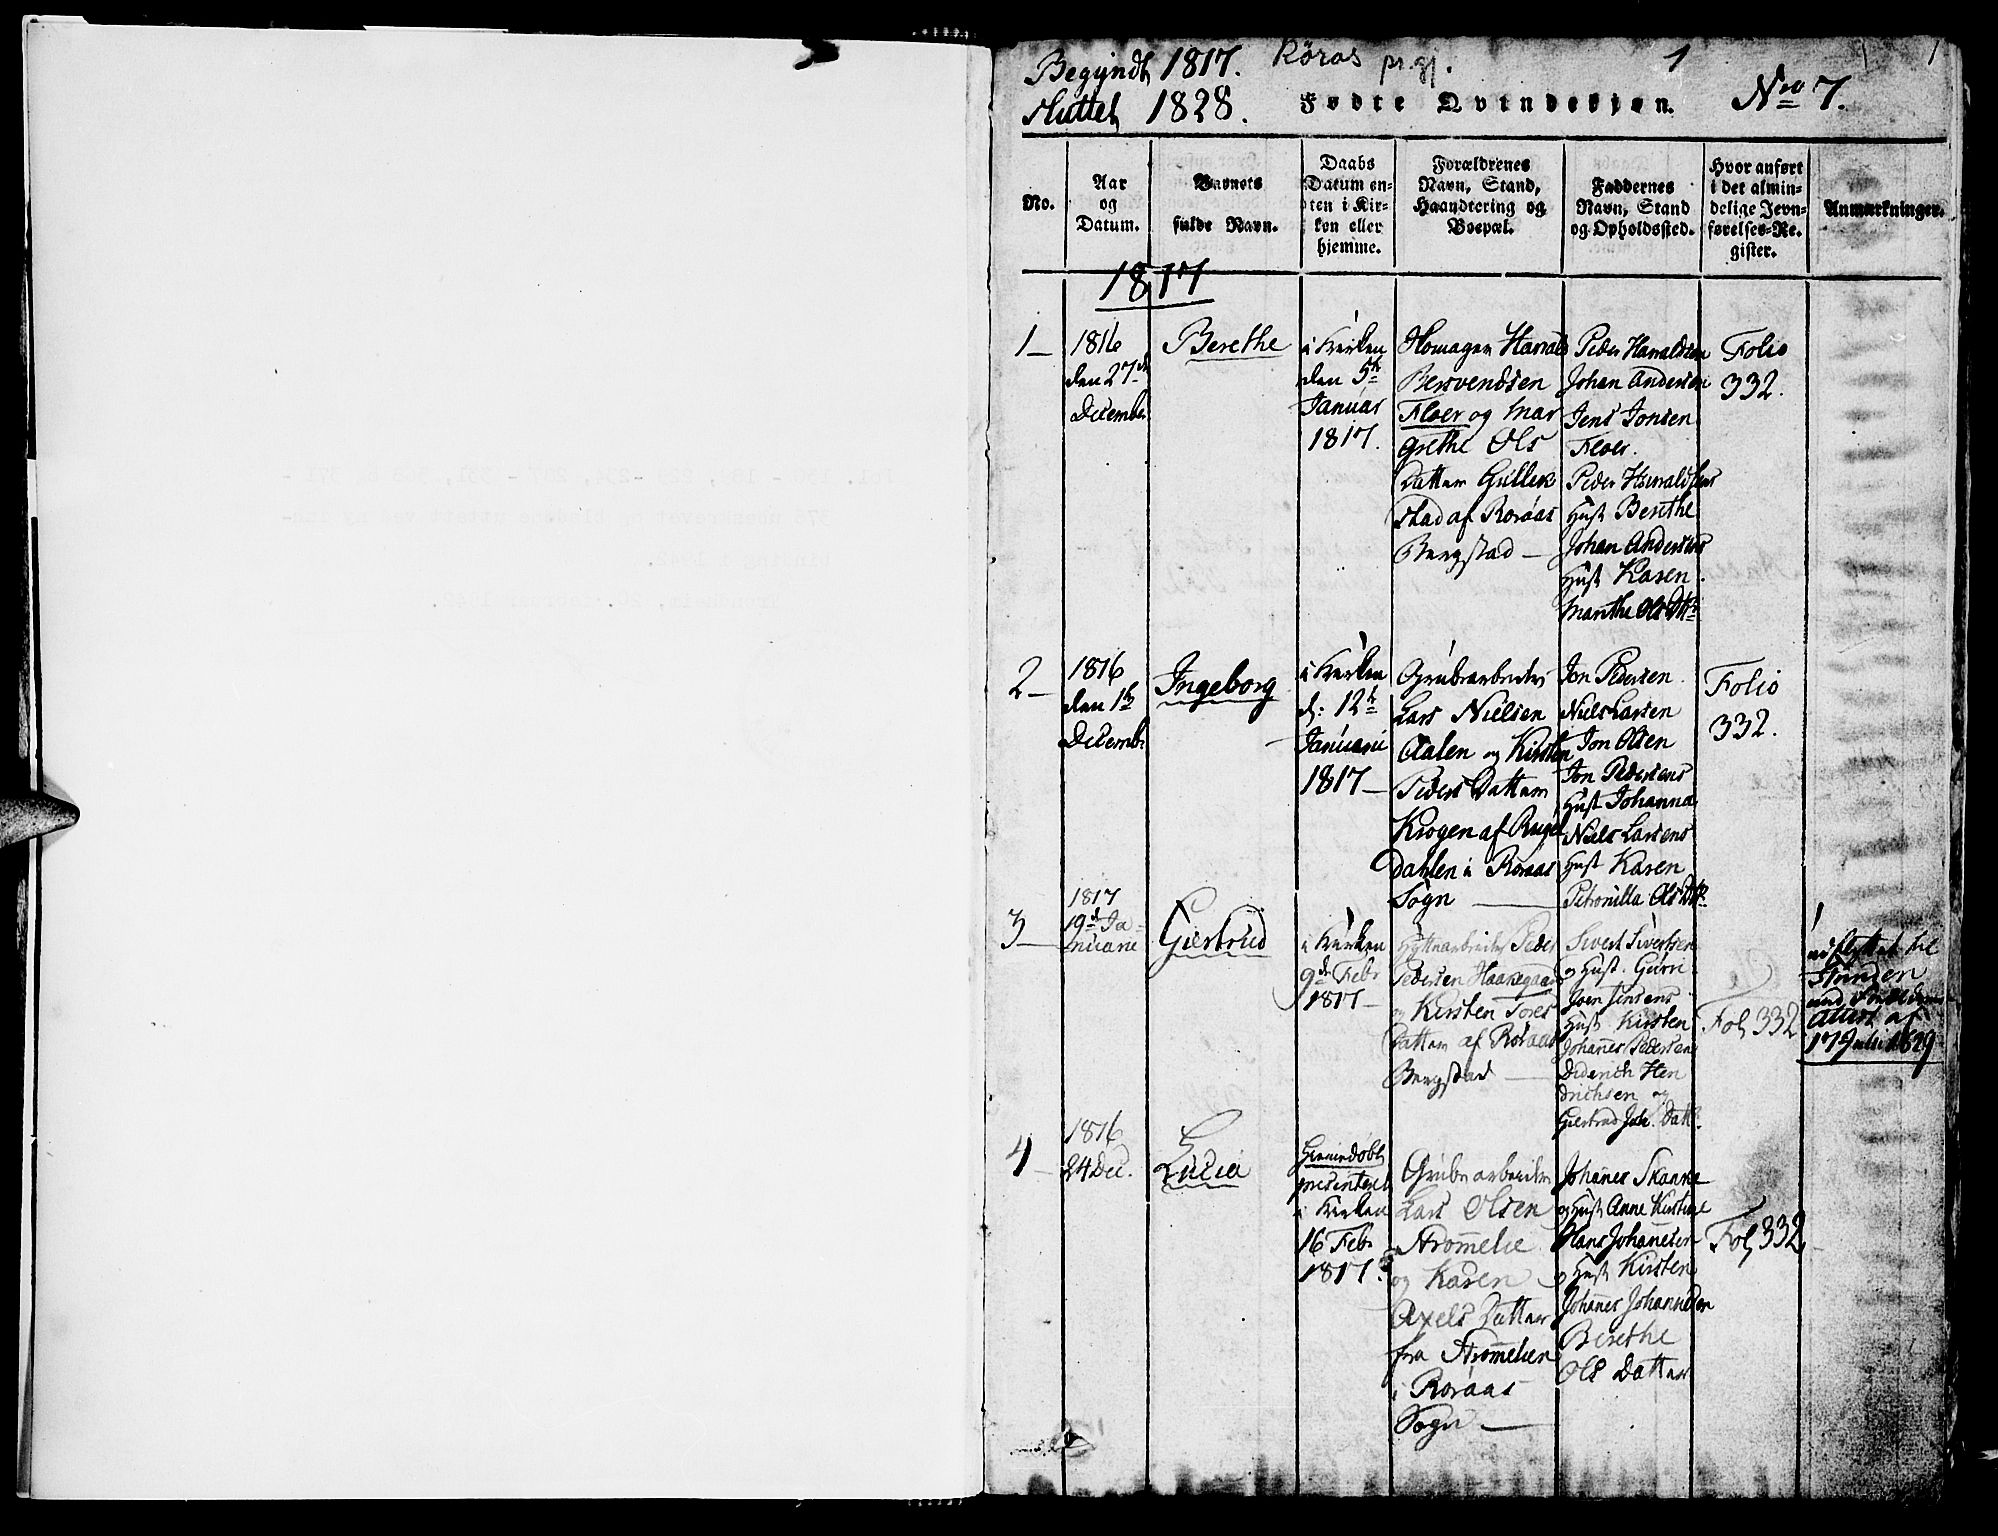 Begyndt 1817. Røros pr.gj. 1 1
Sluttet 1828. Fødte Qvindekjøn. No 7.
No.
Aar
og
Datum.
Barnets
fulde Navn.
Daabs
Datum en-
ten i Kir-
ken eller
hjemme.
Forældrenes
Navn, Stand,
Haandtering og
Boepæl.
Faddernes
Navn, Stand
og Opholdssted.
Hvor anført
i det almin-
delige Jevn-
førelses-Re-
gister.
Anmærkninger.
1817
1
1816
den 27d
December
Berethe
i Kirken
den 5te
Januar
1817.
Homager Harrald
Bersvendsen
Floer og Mar
grethe Ols
Datter Gullik
stad af Røraas
Bergstad
Peder Harraldsen
Johan Andersen
Jens Jonsen
Floer.
Peder Harraldsens
Hust Berethe
Johan Andersens
Hust Karen
Marithe Ols Dtr
Folio
332.
2
1816
den 1te
Decembr
Ingeborg
i Kirken
d: 12te
Januarii
1817
Grubearbeider
Lars Nielsen
Aalen og Kirsten
Peders Datter
Krogen af
Dahlen i Røraas
Sogn
Jon Pedersen
Niels Larsen
Jon Olsen
Jon Pedersens
Hust Johanna
Niels Larsens
Hust Karen
Petronilla Ols Dtr
Folio
332.
3
1817
19d Ja-
nuarii
Giertrud
i Kirken
9de Febr
1817
Hyttearbeider Peder
Pedersen Haanegaard
og Kirsten Tores
Datter af Røraas
Bergstad
Sivert Sivertsen
og Hust. Gurri
Joen Jensens
Hust Kirsten
Johanes Pedersen
Diderich Hen
drichsen og
Giertrud Joh. Datt.
Fol 332
udflyttet til
Strinden
Attest af
17 Julii 1829
4
1816
24 Dec.
Lucia
Hiemedøbt
presenteret
i Kirken
16 Febr
1817.
Grube arbeider
Lars Olsen
Strømelie
og Karen
Axels Datter
fra Strømelien
i Røraas
Sogn
Johanes Skanke
og Hust Anne Kirstine
Hans Johanesen
og Hust Kirsten
Johanes Johannesen
Berethe
Ols Datter
Fol 332